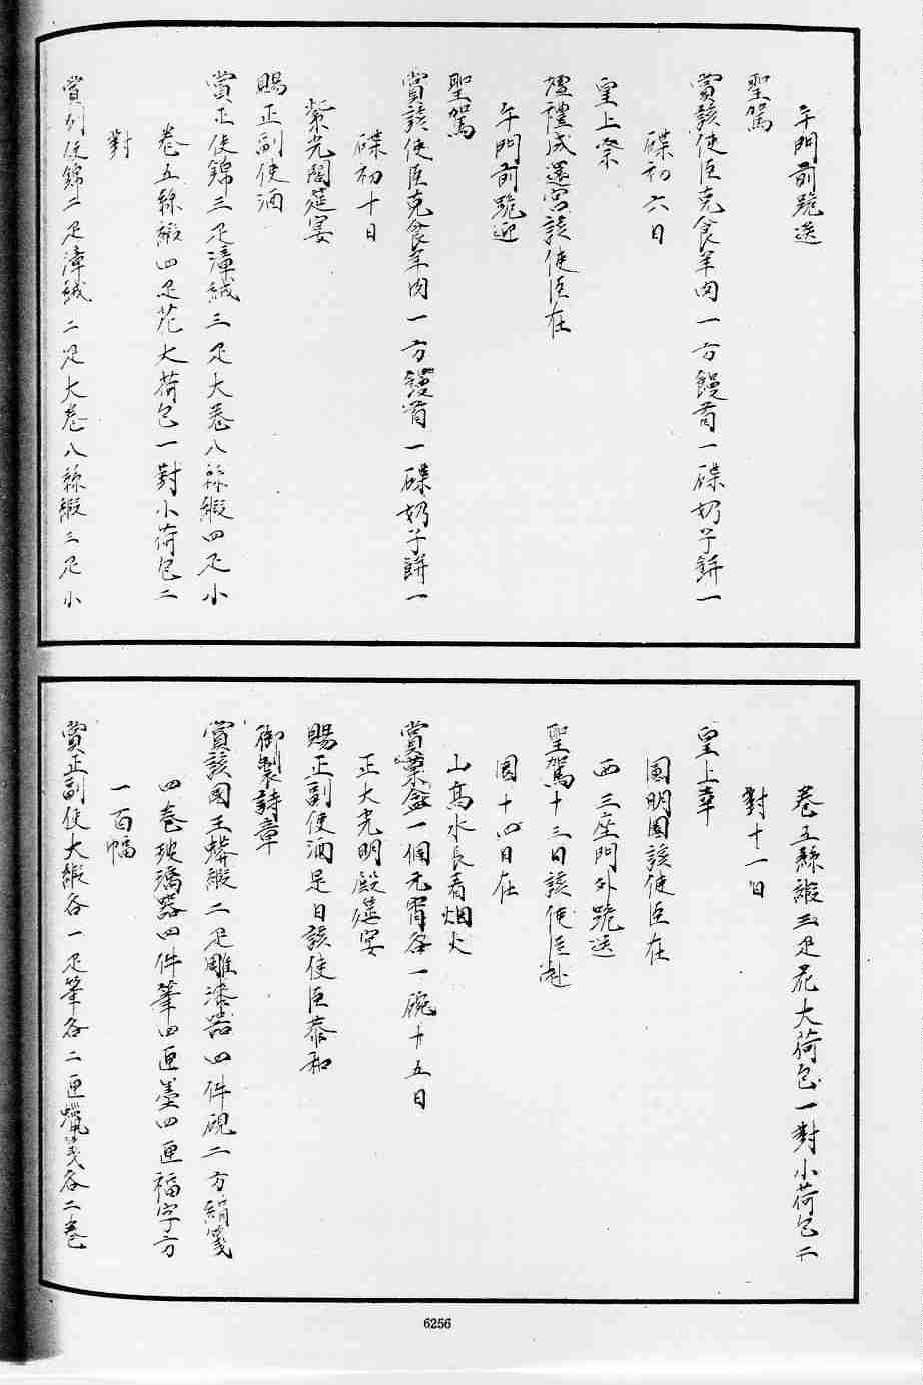 午門前跪送
聖駕
賞該使臣克食羊肉一方饅首一碟奶子餅一
碟初六日
皇上祭
壇禮成還宮該使臣在
午門前跪迎
聖駕
賞該使臣克食羊肉一方饅首一碟奶子餅一
碟初十日
紫光閣筵宴
賜正副使酒
賞正使錦三疋漳絨三疋大卷八絲緞四疋小
卷五絲緞四疋花大荷包一對小荷包二
對
賞副使錦二疋漳絨二疋大卷八絲緞三疋小
卷五絲緞三疋花大荷包一對小荷包二
對十一日
皇上幸
圓明園該使臣在
西三座門外跪送
聖駕十三日該使臣赴
園十四日在
山高水長看烟火
賞菓盒一個元宵各一碗十五日
正大光明殿筵宴
賜正副使酒是日該使臣恭和
御製詩章
賞該國王蟒緞二疋雕漆器四件硯二方絹箋
四卷玻璃器四件筆四匣墨四匣福字方
一百幅
賞正副使大緞各一疋筆各二匣蠟箋各二卷
6256